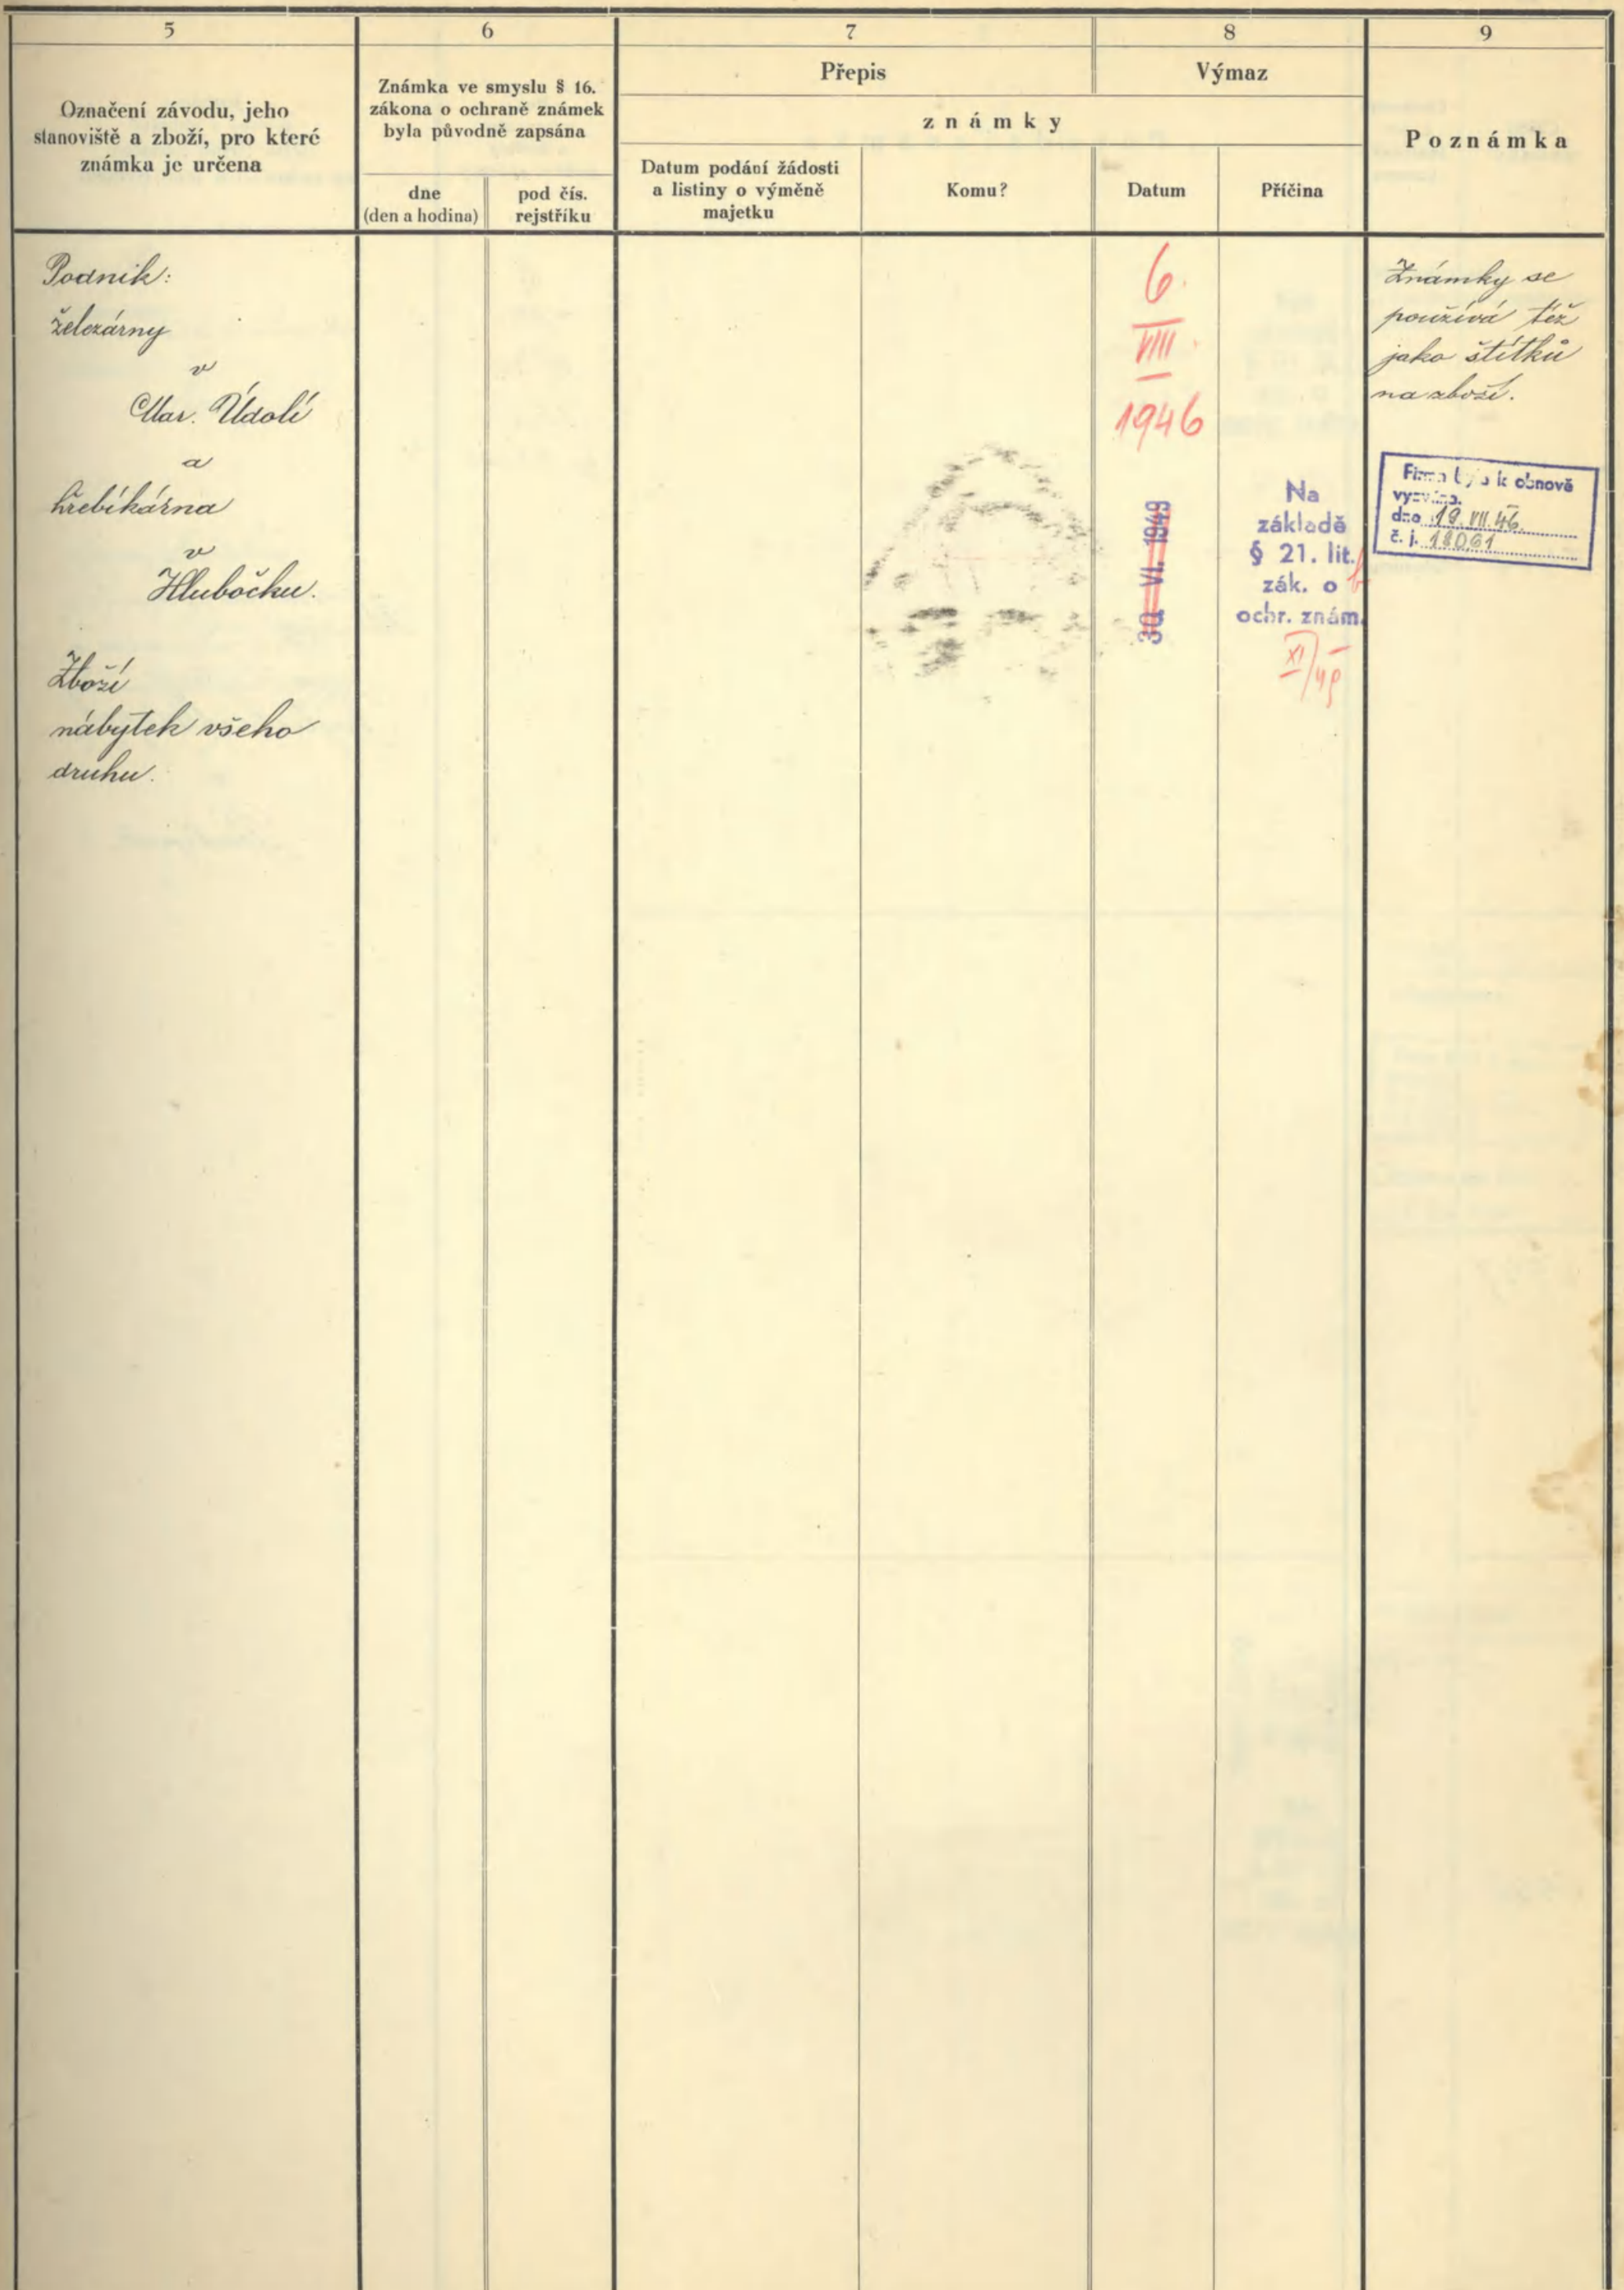 5
6
7
8
9
Označení závodu, jeho
stanoviště a zboží, pro které
známka je určena
Známka ve smyslu § 16.
zákona o ochraně známek
byla původně zapsána
dne
(den a hodina)
pod čís.
rejstříku
Přepis
Výmaz
známky
Datum podání žádosti
a listiny o výměně
majetku
Komu?
Datum
Příčina
Poznámka
Podnik:
železárny
v
Mar. Údolí
a
hřebíkárna
v
Hlubočku.
Zboží
nábytek všeho
druhu.
6.
VIII.
1946
30. VI. 1949
Na
základě
§ 21. lit.
b
zák. o
ochr. znám.
XI/49
Známky se
používá též
jako štítků
na zboží.
Firma byla k obnově
vyzvána.
dne 19. VII. 46.
č. j. 18061